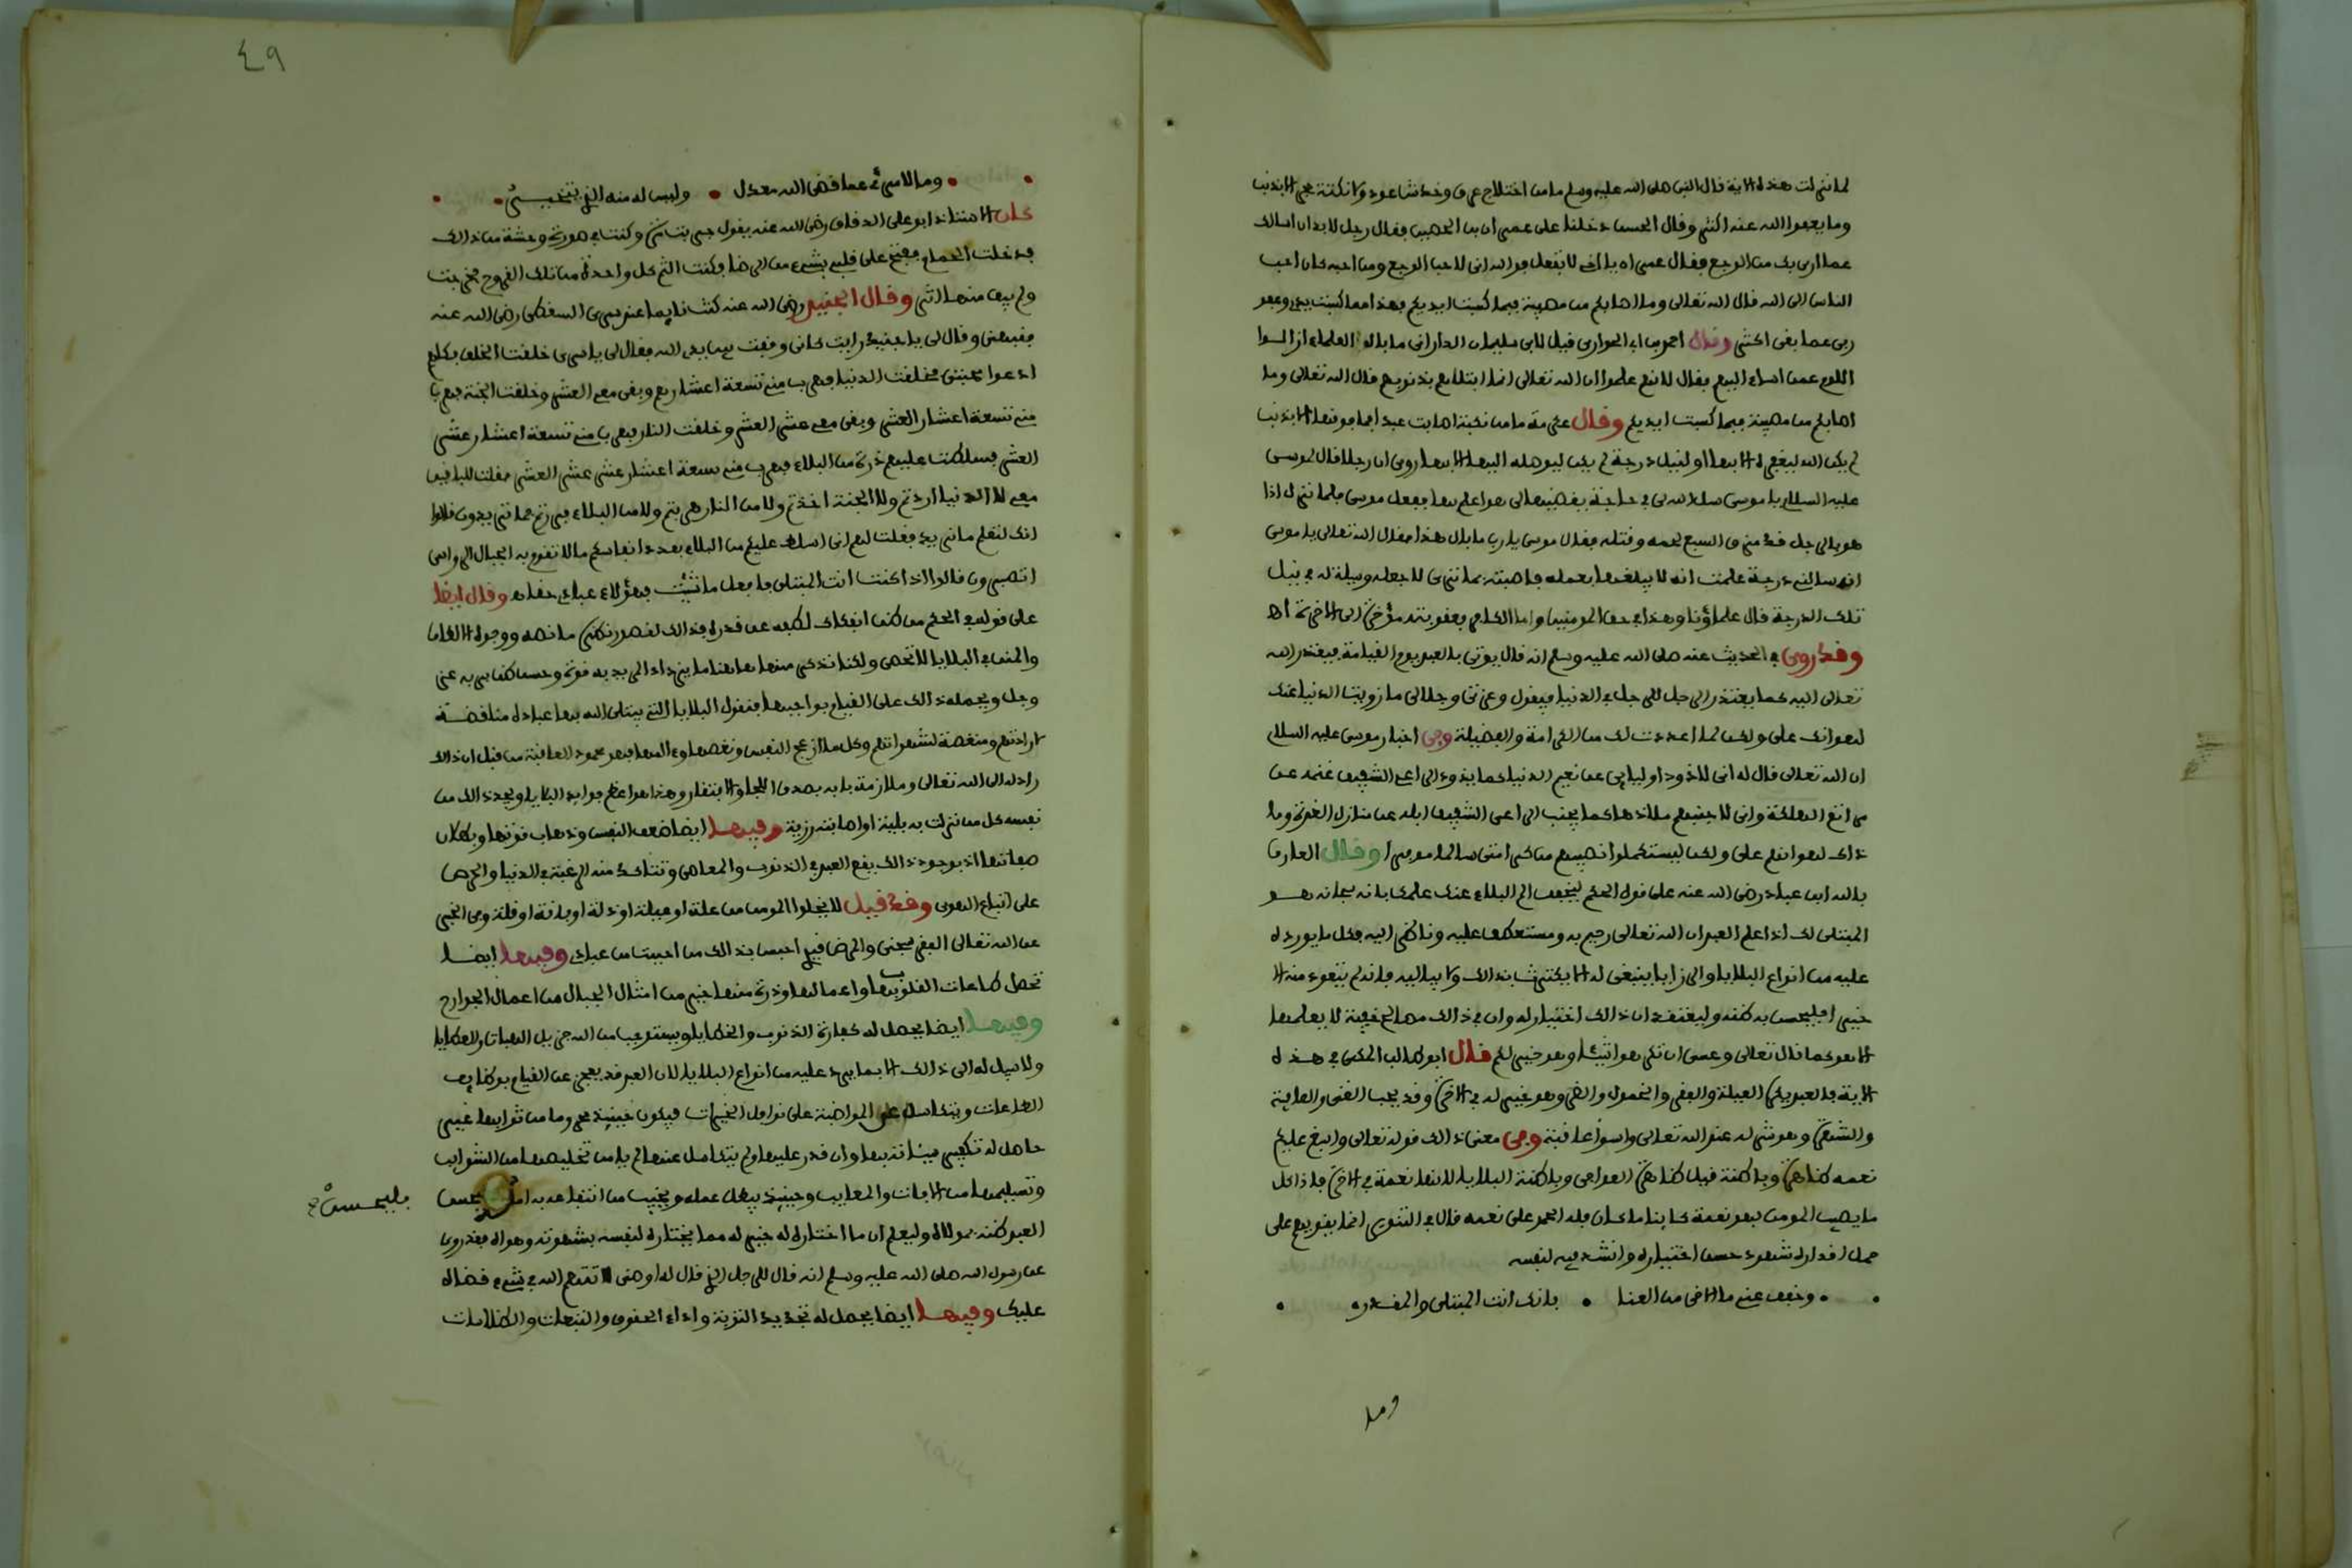 لما نزلت هذه الاية قال النبي صلى الله عليه وسلم ما من اختلاج عرق وخدش عود ولا نكتة حجر الا بذنب
وما يعفوا الله عنه اكثر وقال الحسن دخلنا على عمران بن الحصين فقال رجل لابد ان اسالك
عما ارى بك من الوجع فقال عمران يا اخي لا تفعل فو الله اني لاحب الوجع ومن احبه كان احب
الناس الى الله قال الله تعالى وما اصابكم من مصيبة فبما كسبت ايديكم فهذا مما كسبت يدي وعفو
ربي عما بقي اكثر وقال احمد بن ابي الحواري قيل لابي سليمان الداراني ما بال العلماء ازالوا
اللوم عمن اساء اليهم فقال لانهم علموا ان الله تعالى انما ابتلاهم بذنوبهم قال الله تعالى وما
اصابكم من مصيبة فبما كسبت ايديكم وقال عكرمة ما من نكبة اصابت عبدا فما فوقها الا بذنب
لم يكن الله ليغفره الا بها او لنيل درجة لم يكن ليوصله اليها الا بها وروي ان رجلا قال لموسى
عليه السلام يا موسى سل الله لي في حاجة يقضيها لي هو اعلم بها ففعل موسى فلما نزل اذا
هو بالرجل قد مزق السبع لحمه وقتله فقال موسى يا رب ما بال هذا فقال الله تعالى يا موسى
انه سالني درجة علمت انه لا يبلغها بعمله فاصبته بما ترى لاجعله وسيلة له في نيل
تلك الدرجة قال علماؤنا وهذا في حق المومنين واما الكافر فعقوبته مؤخرة الى الاخرة اه
وقد روي في الحديث عنه صلى الله عليه وسلم انه قال يوتى بالعبد يوم القيامة فيعتذر الله
تعالى اليه كما يعتذر الرجل للرجل في الدنيا فيقول وعزتي وجلالي ما زويت الدنيا عنك
لهوانك علي ولكن لما اعددت لك من الكرامة والفضيلة وفي اخبار موسى عليه السلام
ان الله تعالى قال له اني لاذود اوليايي عن نعيم الدنيا كما يذود الراعي الشفيق غنمه عن
مراتع الهلكة واني لاجنبهم ملاذها كما يجنب الراعي الشفيق ابله عن منازل الغرة وما
ذاك لهوانهم علي ولكن ليستكملوا نصيبهم من كرامتي سالما موفرا وقال العارف
بالله ابن عباد رضي الله عنه على قول الحكم ليخفف الم البلاء عنك علمك بانه سبحانه هو
المبتلي لك اذا علم العبد ان الله تعالى رحيم به ومستعطف عليه وناظر اليه فكل ما يورده
عليه من انواع البلايا والرزايا ينبغي له الا يكترث بذالك ولا يباليه فانه لم يتعوده منه الا
خيرا فليحسن به ظنه وليعتقد ان ذالك اختيار له وان في ذالك مصالح خفية لا يعلمها
الا هو كما قال تعالى وعسى ان تكرهوا شيئا وهو خير لكم قال ابو طالب المكي في هذه
الاية فالعبد يكره العيلة والفقر والخمول والضر وهو خير له في الاخرة وقد يحب الغنى والعافية
والشهرة وهو شر له عند الله تعالى واسوأ عاقبة وفي معنى ذالك قوله تعالى واسبغ عليكم
نعمه ظاهرة وباطنة قيل ظاهرة العوافي وباطنة البلايا لانها نعمة في الاخرة فاذا كل
ما يصيب المومن فهو نعمة كاينا ما كان فله الحمد على نعمه قال في التنوير انما يقويهم على
حمل اقداره شهود حسن اختياره وانشد فيه لنفسه
• وخفف عني ما الاقي من العنا • بانك انت المبتلي والمقدر •
وما
٤٩
• وما لامرئ عما قضى الله معدل • وليس له منه الذي يتخير •
كان الاستاذ ابو علي الدقاق رضي الله عنه يقول
فدخلت الحمام ففتح على قلبي بشيء من الرضا فكنت الثم كل واحدة من تلك القروح فخرجت
ولم يبق منها اثر وقال الجنيد رضي الله عنه كنت نايما عند سري السقطي رضي الله عنه
فنبهني وقال لي يا جنيد رايت كاني وقفت بين يدي الله فقال لي يا سري خلقت الخلق فكلهم
ادعوا محبتي فخلقت الدنيا فهرب مني تسعة اعشارهم وبقي معي العشر وخلقت الجنة فهرب
مني تسعة اعشار العشر وبقي معي عشر العشر وخلقت النار فهرب مني تسعة اعشار عشر
العشر فسلطت عليهم ذرة من البلاء فهرب مني تسعة اعشار عشر عشر العشر فقلت للباقين
معي لا الدنيا اردتم ولا الجنة اخذتم ولا من النار هربتم ولا من البلاء فررتم فما تريدون قالوا
انك لتعلم ما نريد فقلت لهم اني اسلط عليكم من البلاء بعدد انفاسكم ما لا تقوم به الجبال الرواسي
اتصبرون قالوا اذا كنت انت المبتلي فافعل ما شئت فهؤلاء عبادي حقا اه وقال ايضا
على قوله في الحكم من ظن انفكاك لطفه عن قدره فذالك لقصور نظره ما نصه ووجوه الالطاف
والمنن في البلايا لا تحصى ولكنا نذكر منها هاهنا ما يزداد المريد به قوة وحسن ظن بربه عز
وجل ويحمله ذالك على القيام بواجبها فنقول البلايا التي يبتلي الله بها عباده مناقضة
لارادتهم ومنغصة لشهواتهم وكل ما ازعج النفس ونغصها والمها فهو محمود العاقبة من قبل ان ذالك
راد له الى الله تعالى وملازمة بابه بصدق اللجا والافتقار وهذا هو اعظم فوايد البلايا ويجد ذالك من
نفسه كل من نزلت به بلية او اصابته رزية وفيها ايضا ضعف النفس وذهاب قوتها وبطلان
صفاتها اذ بوجود ذالك يقع العبد في الذنوب والمعاصي وتتاكد منه الرغبة في الدنيا والحرص
على اتباع الهوى وقد قيل لا يخلوا المومن من علة او عيلة او ذلة او باقة او قلة وفي الخبر
عن الله تعالى الفقر سجني والمرض قيدي احبس بذالك من احببت من عبادي وفيها ايضا
تحصل طاعات القلوب بها واعمالها وذرة منها خير من امثال الجبال من اعمال الجوارح
وفيها ايضا يحصل له كفارة الذنوب والخطايا ويستوجب من الله جزيل الهبات والعطايا
ولا سبيل له الى ذالك الا بما يرد عليه من انواع البلايا لان العبد قد يعجز عن القيام بوظايف
الطاعات ويتكاسل عن المواضبة على نوافل الخيرات فيكون حينيذ محروما من ثوابها غير
حاصل له تكفير سيئاته بها وان قدر عليها ولم يتكاسل عنها لم يامن تخليصها من الشوايب
وتسليمها من الافات والمعايب وحينيذ يبطل عمله ويخيب من انتفاعه به امله
فليحسن صح
العبد ظنه بمولاه وليعلم ان ما اختاره له خير له مما يختاره لنفسه بشهوته وهواه فقد روي
عن رسول الله صلى الله عليه وسلم انه قال للرجل الذي قال له اوصني لا تتهم الله في شيء قضاه
عليك وفيها ايضا يحصل له تجديد التوبة واداء الحقوق والتبعات والظلامات